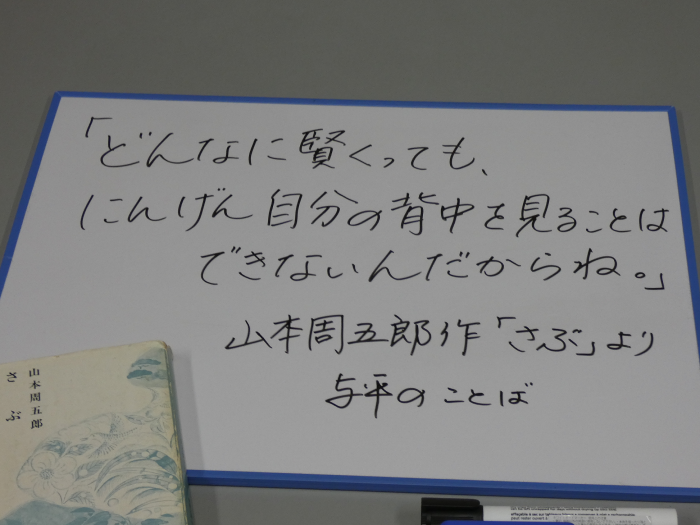 「どんなに賢くっても、
にんげん自分の背中を見ることは
できないんだからね。」
山本周五郎作「さぶ」より
与平のことば
山本周五郎
さぶ